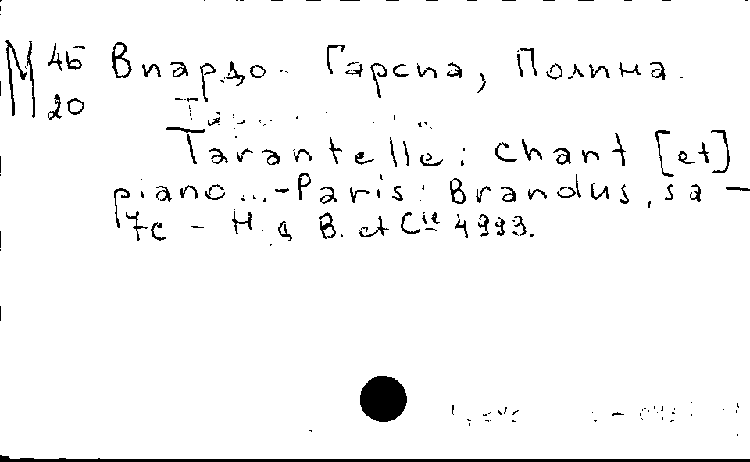 М 45 Виардо-Гарсиа, Полина.
20
Tarantelle: chant [et]
piano...-Paris: Brandus, sa -
7с - Н. д. B. et Cie 4993.